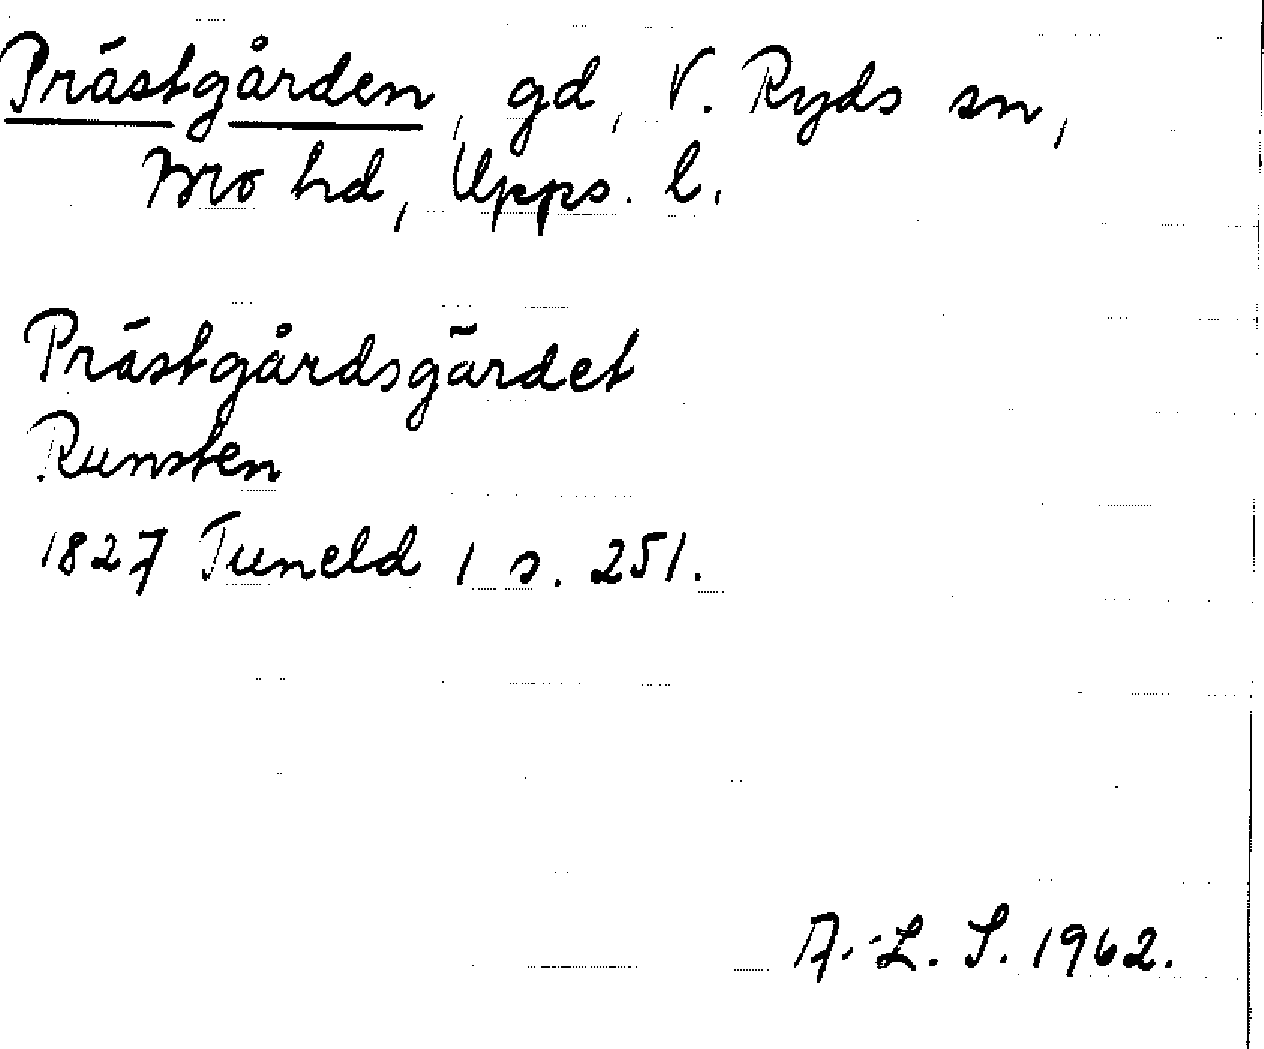 Prästgården, gd, V. Ryds sn,
Bro hd, Upps. l.
Prästgårdsgärdet
Runsten
1827 Tuneld 1 s. 251.
A.-L. S. 1962.